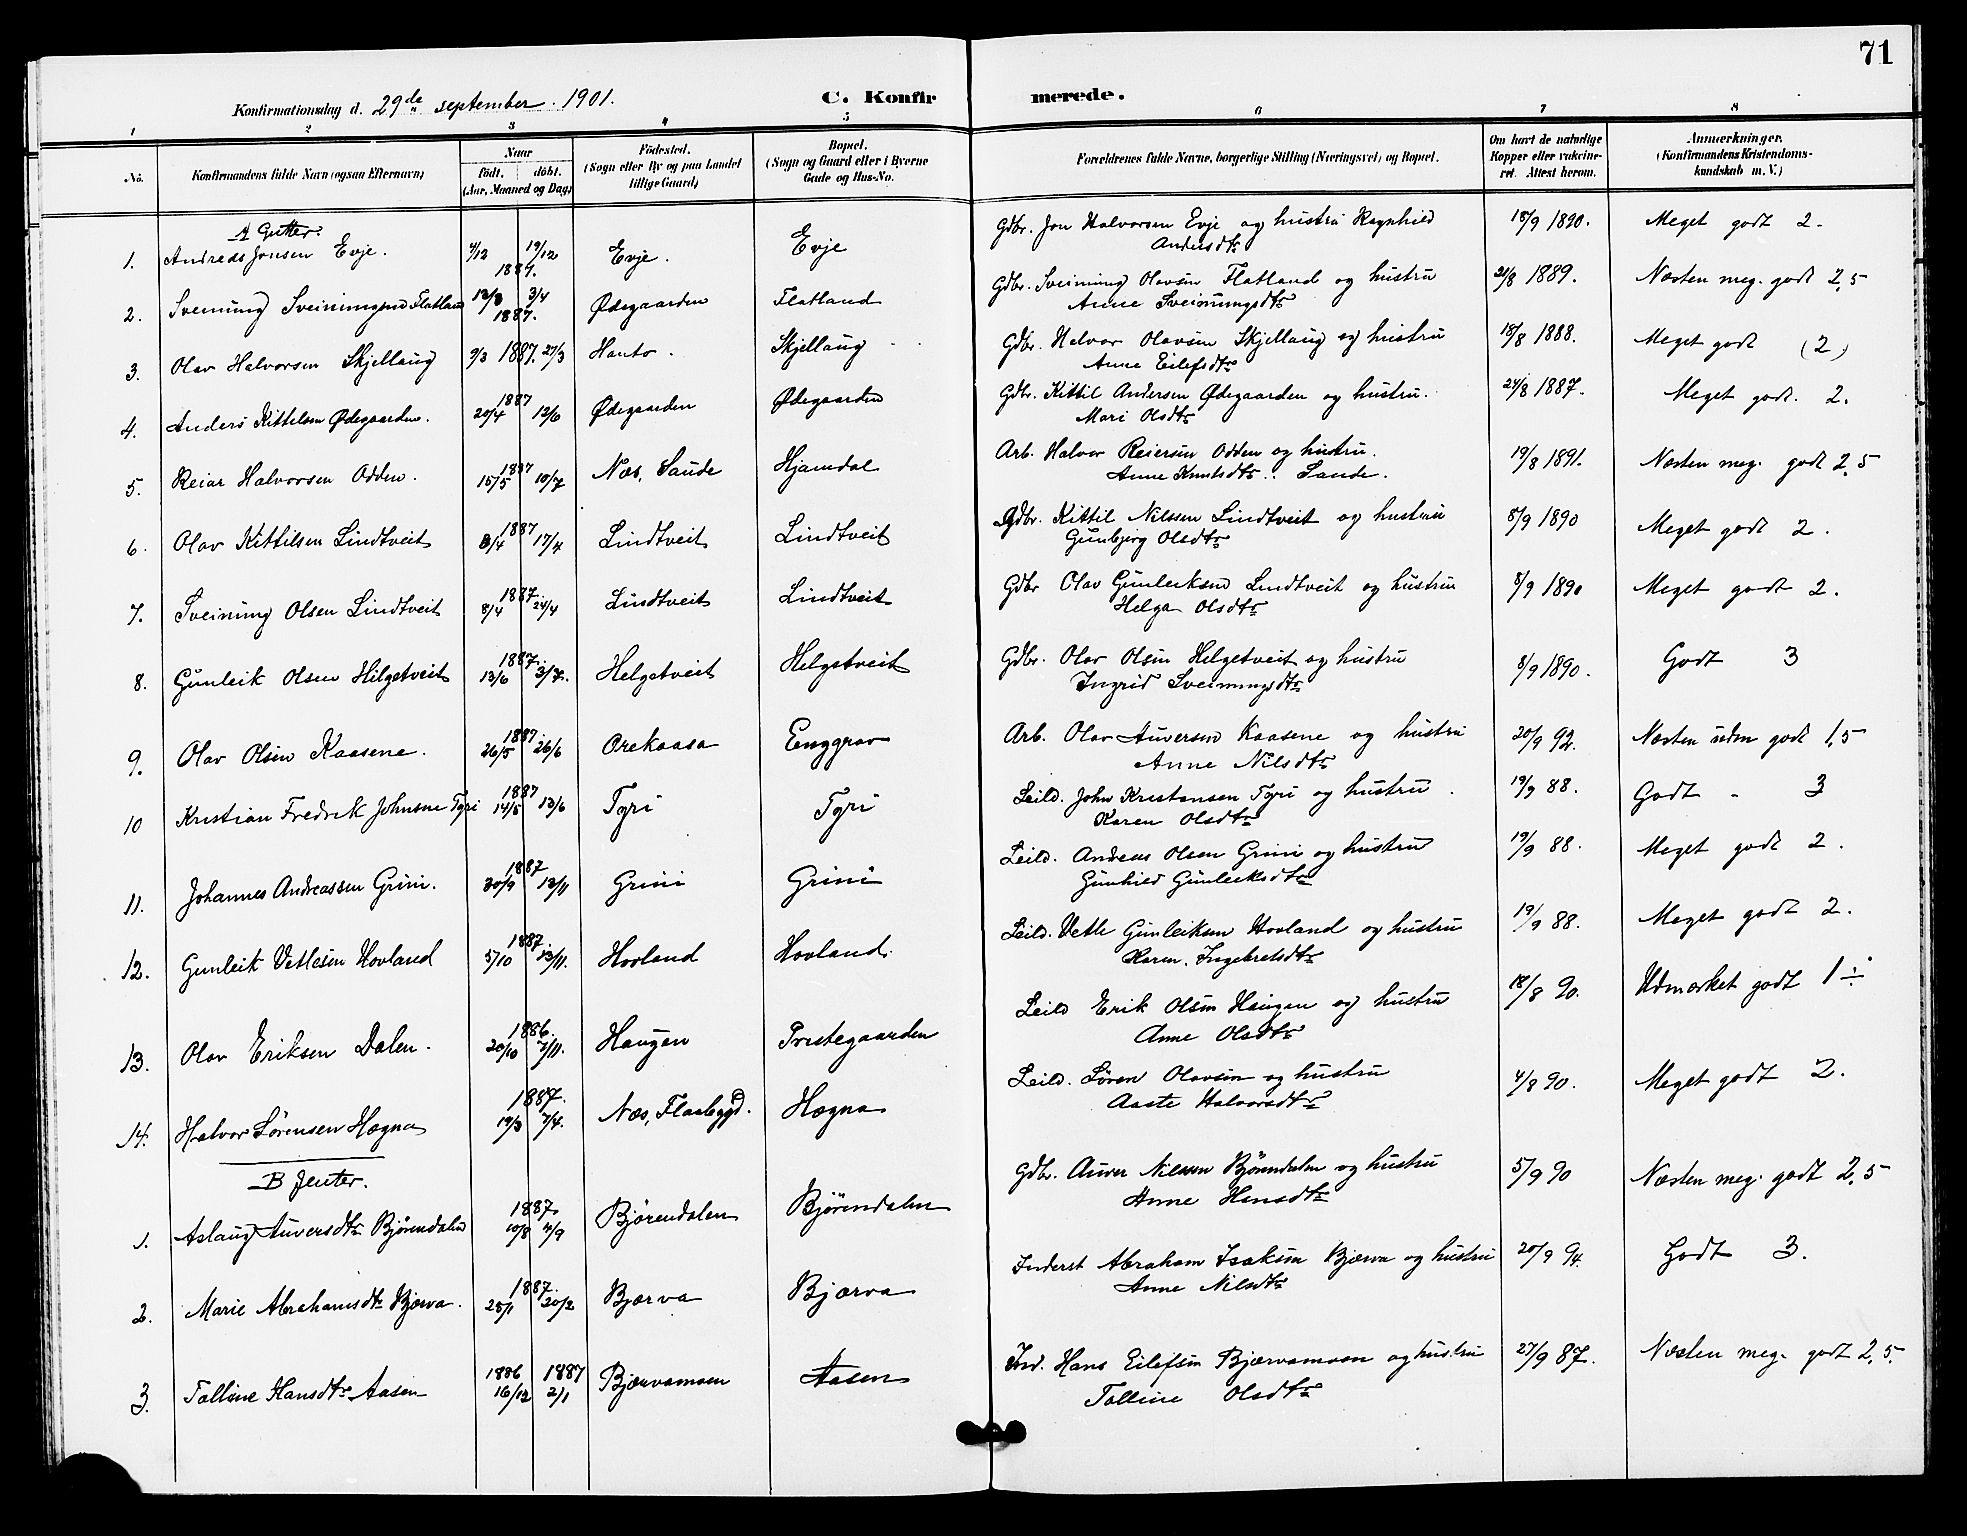 71
Konfirmationsdag d. 29de september 1901.
C. Konfirmerede.
1 2 3 4 5 6 7 8
No.
Konfirmandens fulde Navn (ogsaa Efternavn)
Naar
födt. döbt.
(Aar, Maaned og Dag)
Födested.
(Sogn eller By og paa Landet
tillige Gaard)
Bopæl.
(Sogn og Gaard eller i Byerne
Gade og Hus-No.
Forældrenes fulde Navne, borgerlige Stilling (Næringsvei) og Bopæl.
Om havt de naturlige
Kopper eller vakcine-
ret. Attest herom.
Anmærkninger.
(Konfirmandens Kristendoms-
kundskab m. V.)
A Gutter.
1. Andreas Jonsen Evje. 4/12 19/12 1887. Evje. Evje Gdbr. Jon Halvorsen Evje og hustru Ragnhild 18/9 1890. Meget godt 2.
Andersdtr
2. Sveinung Sveinungsen Flatland 12/3 3/4 1887. Ødegaarden Flatland Gdbr. Sveinung Olavsen Flatland og hustru 21/8 1889. Næsten meg. godt 2,5
Anne Sveinungsdtr
3. Olav Halvorsen Skjellaug 9/3 1887. 27/3 Hanto. Skjellaug Gdbr. Halvor Olavsen Skjellaug og hustru 18/8 1888. Meget godt (2)
Anne Eilefsdtr
4. Anders Kittelsen Ødegaarden. 1887 20/4 12/6 Ødegaarden Ødegaarden Gdbr. Kittil Andersen Ødegaarden og hustru. 24/8 1887. Meget godt. 2.
Mari Olsdtr
5. Reiar Halvorsen Odden. 1887 15/5 10/7 Næs, Saude Hjamdal Arb. Halvor Reiersen Odden og hustru. 19/8 1891. Næsten meg. godt 2,5
Anne Knutsdtr. Saude.
6. Olav Kittilsen Lindtveit 1887 3/4 17/4 Lindtveit Lindtveit Gdbr. Kittil Nilssen Lindtveit og hustru 8/9 1890 Meget godt 2.
Gunbjørg Olsdtr
7. Sveinung Olsen Lindtveit 1887. 8/4 24/4 Lindtveit Lindtveit Gdbr Olav Gunleiksen Lindtveit og hustru 8/9 1890 Meget godt 2.
Helga Olsdtr
8. Gunleik Olsen Helgetveit 1887. 13/6 3/7. Helgetveit Helgetveit Gdbr. Olav Olsen Helgetveit og hustru 8/9 1890. Godt 3
Ingrid Sveinungsdtr
9. Olav Olsen Kaasene. 1887. 26/5 26/6 Orekaasa Enggrav Arb. Olav Auversen Kaasene og hustru 20/9 92. Næsten udm godt 1,5
Anne Nilsdtr
10 Kristian Fredrik Johnsen Tyri 1887 14/5 13/6 Tyri Tyri Leild. John Kristensen Tyri og hustru. 19/9 88. Godt - 3
Karen Olsdtr
11. Johannes Andreassen Grini. 1887 30/9 13/11 Grini Grini Leild. Andreas Olsen Grini og hustru 19/9 88. Meget godt 2.
Gunhild Gunleiksdtr
12. Gunleik Vetlesen Hovland 1887. 5/10 13/11. Hovland Hovland. Leild. Vetle Gunleiksen Hovland og hustru 19/9 88. Meget godt 2.
Karen Ingebretsdtr
13. Olav Eriksen Dalen. 1886. 20/10 7/11. Haugen Prestegaarden Leild Erik Olsen Haugen og hustru 18/8 90. Udmærket godt 1 ÷
Anne Olsdtr
14. Halvor Sørensen Hogna 1887. 19/3 7/4. Næs, Flaabygd. Hogna Leild. Søren Olavsen og hustru 4/8 90. Meget godt 2.
Aaste Halvorsdtr
B Jenter.
1. Aslaug Auversdtr Bjørndalen 1887. 10/8 4/9 Bjørendalen Bjørendalen Gdbr. Auver Nilssen Bjørndalen og hustru 5/9 90 Næsten meg. godt 2,5
Anne Hansdtr
2. Marie Abrahamsdtr Bjærva. 1887. 25/1 20/2 Bjærva Bjærva Inderst Abraham Isaksen Bjærva og hustru 20/9 94. Godt 3.
Anne Nilsdtr
3. Talline Hansdtr Aasen 1886 16/12 1887 2/1 Bjærvamoen Aasen Ind. Hans Eilefsen Bjærvamoen og hustru 27/9 87. Næsten meg. godt 2,5.
Talline Olsdtr